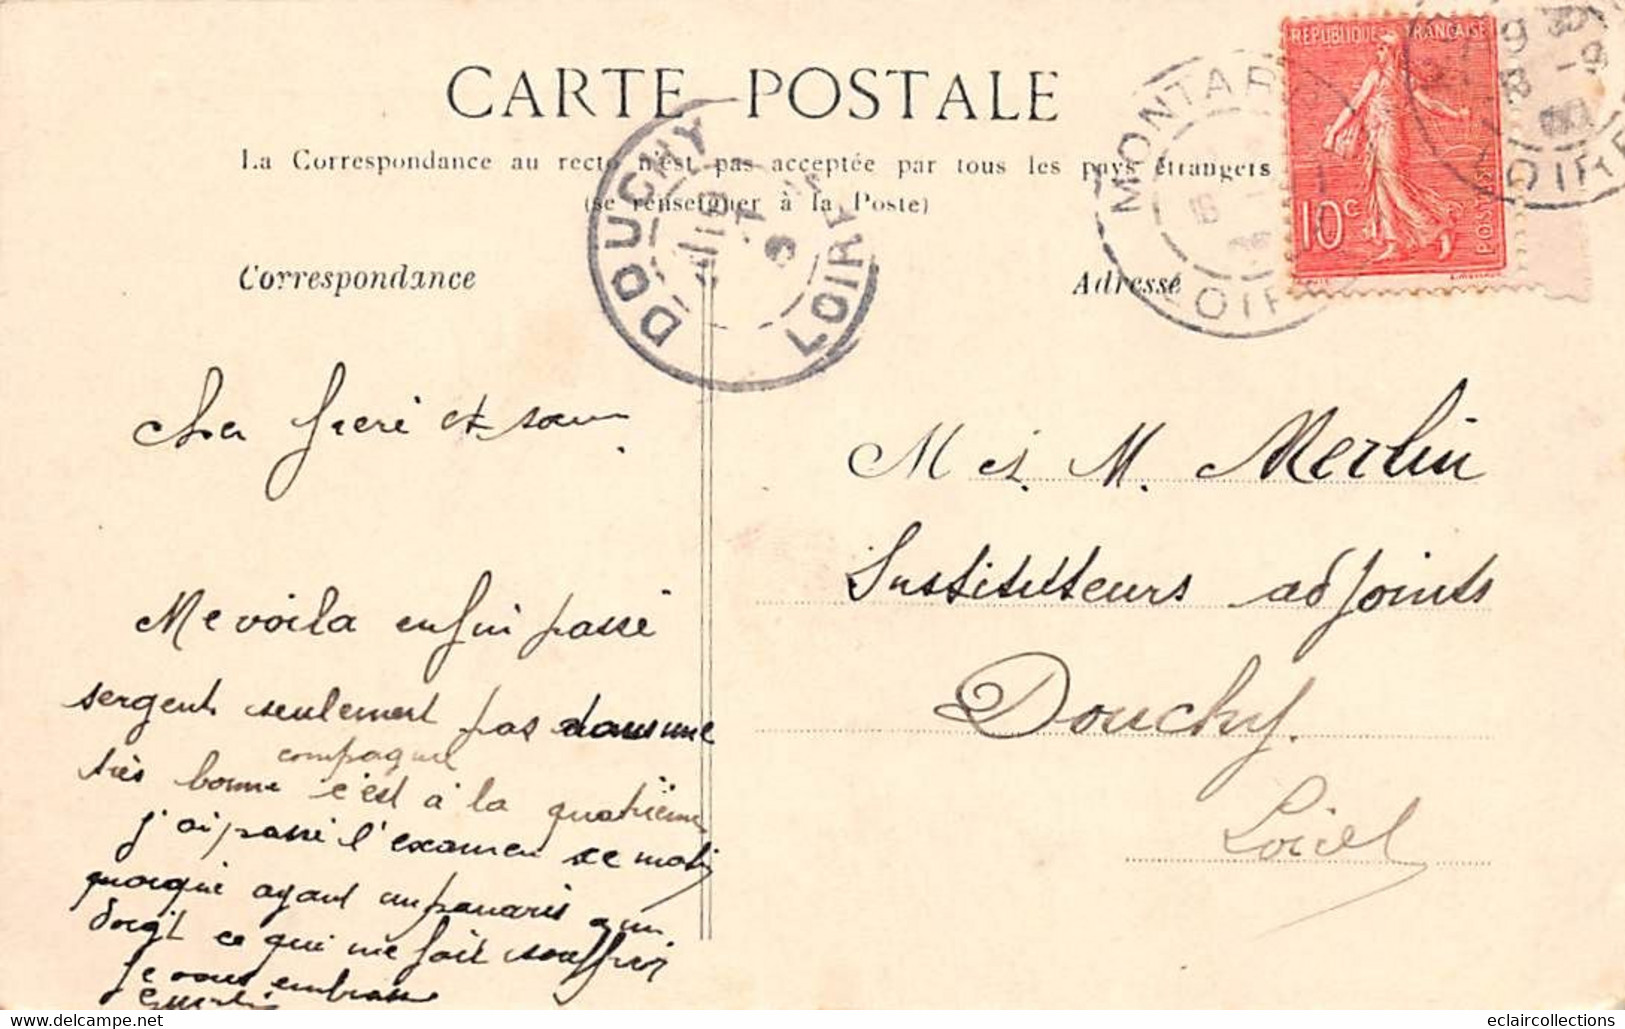 CARTE POSTALE
La Correspondance au recto n'est pas acceptée par tous les pays étrangers
(se renseigner à la Poste)
Correspondance
Adresse
DOUCHY
LOIRET
MONTAR
LOIRE
REPUBLIQUE FRANÇAISE
10c
POSTES
Cher frère et sœur
Me voila enfin passé
sergent seulement pas dans une
très bonne compagnie c'est à la quatrième
j'ai passé l'examen ce matin
quoique ayant un panaris a un
doigt ce qui me fait souffrir
Je vous embrasse
M et M. Merlin
Instituteurs adjoints
Douchy.
Loiret
© eclaircollections